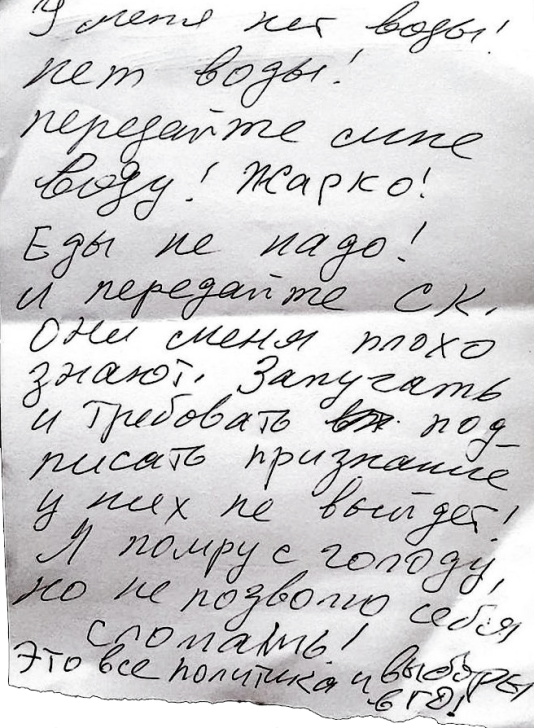 У меня нет воды!
нет воды!
передайте мне
воду! Жарко!
Еды не надо!
и передайте СК.
Они меня плохо
знают. Запугать
и требовать под-
писать признание
у них не выйдет!
Я помру с голоду,
но не позволю себя
сломать!
Это все политика и выборы
в ГД!